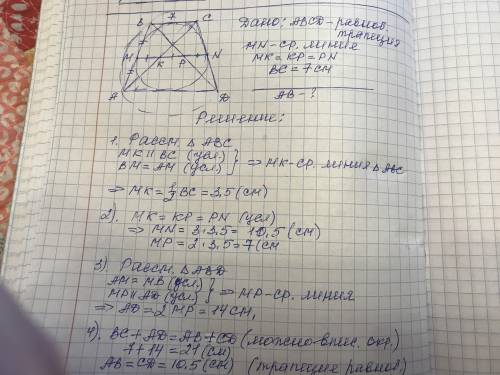 B 7 C
M K P N
A D
Дано: ABCD - равноб.
трапеция
MN - ср. линия
MK = KP = PN
BC = 7 см
AB - ?
Решение:
1. Рассм. Δ ABC
MK || BC (усл.)
BM = AM (усл.) } => MK - ср. линия Δ ABC
=> MK = 1/2 BC = 3,5 (см)
2). MK = KP = PN (усл)
=> MN = 3·3,5 = 10,5 (см)
MP = 2·3,5 = 7 (см
3). Рассм. Δ ABD
AM = MB (усл)
MP || AD (усл) } => MP - ср. линия
=> AD = 2 MP = 14 см,
4). BC + AD = AB + CD (можно впис. окр.)
7 + 14 = 21 (см)
AB = CD = 10,5 (см) (трапеция равноб.)